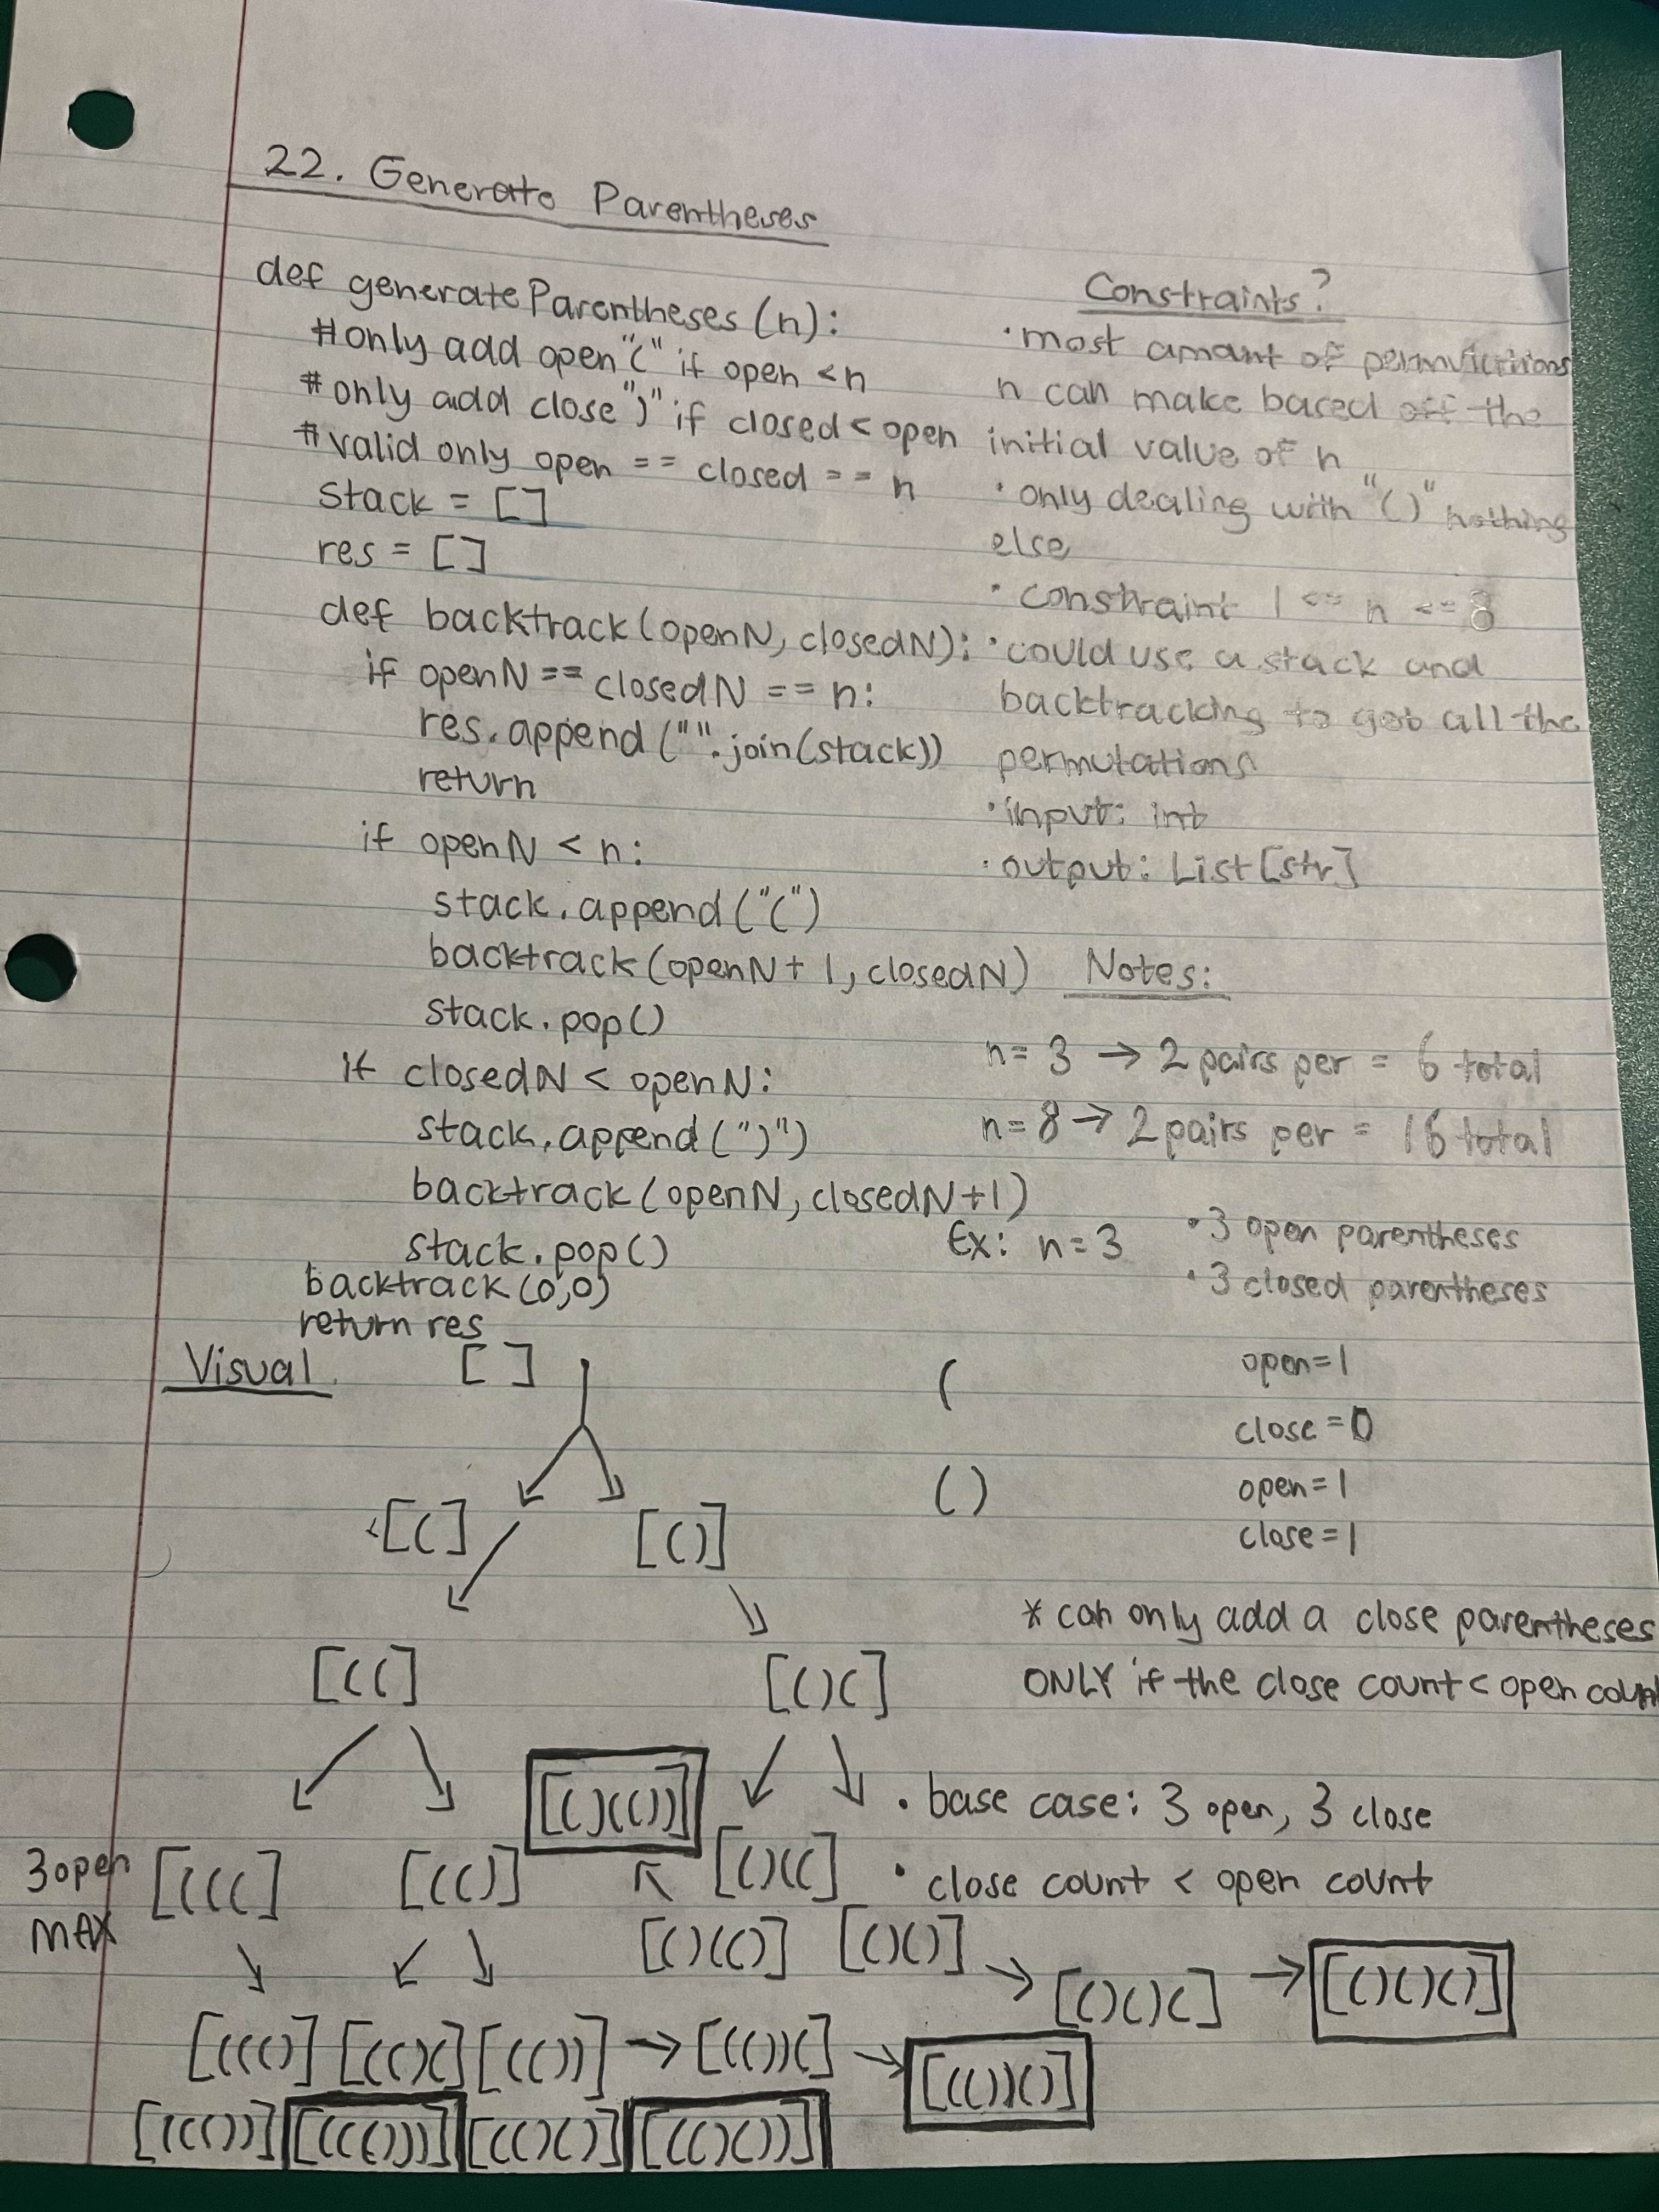 22. Generate Parentheses
def generateParentheses(n):
#only add open "(" if open < n
#only add close ")" if closed < open
#valid only open == closed == n
stack = []
res = []
def backtrack(openN, closedN):
if openN == closedN == n:
res.append("".join(stack))
return
if openN < n:
stack.append("(")
backtrack(openN + 1, closedN)
stack.pop()
if closedN < openN:
stack.append(")")
backtrack(openN, closedN+1)
stack.pop()
backtrack(0,0)
return res
Constraints?
• most amount of
n can make based off the
initial value of n
• only dealing with "()" nothing
else
• constraint 1 <= n <= 8
• could use a stack and
backtracking to get all the
permutations
• input: int
• output: List[str]
Notes:
n = 3 → 2 pairs per = 6 total
n = 8 → 2 pairs per = 16 total
Ex: n = 3
• 3 open parentheses
• 3 closed parentheses
( open=1
close=0
() open=1
close=1
* can only add a close parentheses
ONLY if the close count < open count
• base case: 3 open, 3 close
• close count < open count
Visual
[ ]
[(] [()]
[((] [()(]
[()(())]
3 open
MAX
[(((] [(()] [()((]
[()(()] [()()]
[()()(] [()()()]
[((()] [(()(] [(())] → [(())(]
[(())()]
[((())] [((()))] [(()()] [(()())]